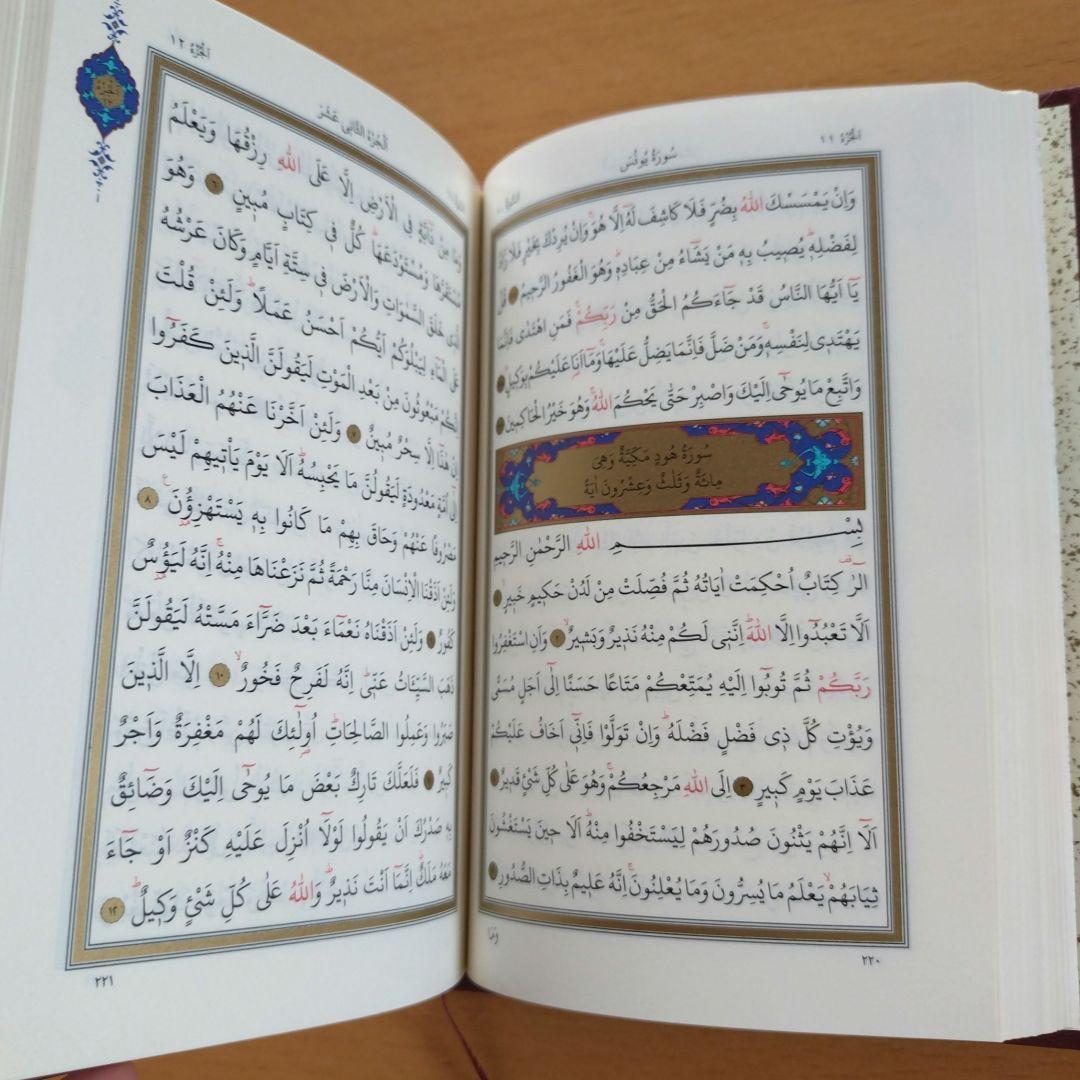 الجزء ١١
سُورَةُ يُونُسَ
وَاِنْ يَمْسَسْكَ اللّٰهُ بِضُرٍّ فَلَا كَاشِفَ لَهُٓ اِلَّا هُوَۚ وَاِنْ يُرِدْكَ بِخَيْرٍ فَلَا رَٓادَّ
لِفَضْلِه۪ۜ يُص۪يبُ بِه۪ مَنْ يَشَٓاءُ مِنْ عِبَادِه۪ۜ وَهُوَ الْغَفُورُ الرَّح۪يمُ قُلْ
يَٓا اَيُّهَا النَّاسُ قَدْ جَٓاءَكُمُ الْحَقُّ مِنْ رَبِّكُمْۚ فَمَنِ اهْتَدٰى فَاِنَّمَا
يَهْتَد۪ي لِنَفْسِه۪ۚ وَمَنْ ضَلَّ فَاِنَّمَا يَضِلُّ عَلَيْهَاۚ وَمَٓا اَنَا۬ عَلَيْكُمْ بِوَك۪يلٍۜ
وَاتَّبِعْ مَا يُوحٰٓى اِلَيْكَ وَاصْبِرْ حَتّٰى يَحْكُمَ اللّٰهُۚ وَهُوَ خَيْرُ الْحَاكِم۪ينَ
سُورَةُ هُودٍ مَكِّيَّةٌ وَهِيَ
مِائَةٌ وَثَلٰثٌ وَعِشْرُونَ اٰيَةً
بِسْمِ اللّٰهِ الرَّحْمٰنِ الرَّح۪يمِ
الٓرٰ۠ كِتَابٌ اُحْكِمَتْ اٰيَاتُهُ ثُمَّ فُصِّلَتْ مِنْ لَدُنْ حَك۪يمٍ خَب۪يرٍۙ
اَلَّا تَعْبُدُٓوا اِلَّا اللّٰهَۜ اِنَّن۪ي لَكُمْ مِنْهُ نَذ۪يرٌ وَبَش۪يرٌۙ ٢ وَاَنِ اسْتَغْفِرُوا
رَبَّكُمْ ثُمَّ تُوبُٓوا اِلَيْهِ يُمَتِّعْكُمْ مَتَاعًا حَسَنًا اِلٰٓى اَجَلٍ مُسَمًّى
وَيُؤْتِ كُلَّ ذ۪ي فَضْلٍ فَضْلَهُۜ وَاِنْ تَوَلَّوْا فَاِنّ۪ٓي اَخَافُ عَلَيْكُمْ
عَذَابَ يَوْمٍ كَب۪يرٍ ٣ اِلَى اللّٰهِ مَرْجِعُكُمْۚ وَهُوَ عَلٰى كُلِّ شَيْءٍ قَد۪يرٌ
اَلَٓا اِنَّهُمْ يَثْنُونَ صُدُورَهُمْ لِيَسْتَخْفُوا مِنْهُۜ اَلَا ح۪ينَ يَسْتَغْشُونَ
ثِيَابَهُمْۙ يَعْلَمُ مَا يُسِرُّونَ وَمَا يُعْلِنُونَۚ اِنَّهُ عَل۪يمٌ بِذَاتِ الصُّدُورِ
وَمَا
٢٢٠
الجزء ١٢
اَلْجُزْءُ الثَّان۪ي عَشَرَ
وَمَا مِنْ دَٓابَّةٍ فِي الْاَرْضِ اِلَّا عَلَى اللّٰهِ رِزْقُهَا وَيَعْلَمُ
مُسْتَقَرَّهَا وَمُسْتَوْدَعَهَاۜ كُلٌّ ف۪ي كِتَابٍ مُب۪ينٍ ٦ وَهُوَ
الَّذ۪ي خَلَقَ السَّمٰوَاتِ وَالْاَرْضَ ف۪ي سِتَّةِ اَيَّامٍ وَكَانَ عَرْشُهُ
عَلَى الْمَٓاءِ لِيَبْلُوَكُمْ اَيُّكُمْ اَحْسَنُ عَمَلًاۜ وَلَئِنْ قُلْتَ
اِنَّكُمْ مَبْعُوثُونَ مِنْ بَعْدِ الْمَوْتِ لَيَقُولَنَّ الَّذ۪ينَ كَفَرُٓوا
اِنْ هٰذَٓا اِلَّا سِحْرٌ مُب۪ينٌ ٧ وَلَئِنْ اَخَّرْنَا عَنْهُمُ الْعَذَابَ
اِلٰٓى اُمَّةٍ مَعْدُودَةٍ لَيَقُولُنَّ مَا يَحْبِسُهُۜ اَلَا يَوْمَ يَأْت۪يهِمْ لَيْسَ
مَصْرُوفًا عَنْهُمْ وَحَاقَ بِهِمْ مَا كَانُوا بِه۪ يَسْتَهْزِؤُ۫نَ ٨
وَلَئِنْ اَذَقْنَا الْاِنْسَانَ مِنَّا رَحْمَةً ثُمَّ نَزَعْنَاهَا مِنْهُۚ اِنَّهُ لَيَؤُ۫سٌ
كَفُورٌ وَلَئِنْ اَذَقْنَاهُ نَعْمَٓاءَ بَعْدَ ضَرَّٓاءَ مَسَّتْهُ لَيَقُولَنَّ
ذَهَبَ السَّيِّـَٔاتُ عَنّ۪يۜ اِنَّهُ لَفَرِحٌ فَخُورٌۙ ١٠ اِلَّا الَّذ۪ينَ
صَبَرُوا وَعَمِلُوا الصَّالِحَاتِۜ اُو۬لٰٓئِكَ لَهُمْ مَغْفِرَةٌ وَاَجْرٌ
كَب۪يرٌ فَلَعَلَّكَ تَارِكٌ بَعْضَ مَا يُوحٰٓى اِلَيْكَ وَضَٓائِقٌ
بِه۪ صَدْرُكَ اَنْ يَقُولُوا لَوْلَٓا اُنْزِلَ عَلَيْهِ كَنْزٌ اَوْ جَٓاءَ
مَعَهُ مَلَكٌۜ اِنَّمَٓا اَنْتَ نَذ۪يرٌۜ وَاللّٰهُ عَلٰى كُلِّ شَيْءٍ وَك۪يلٌۜ ١٢
٢٢١